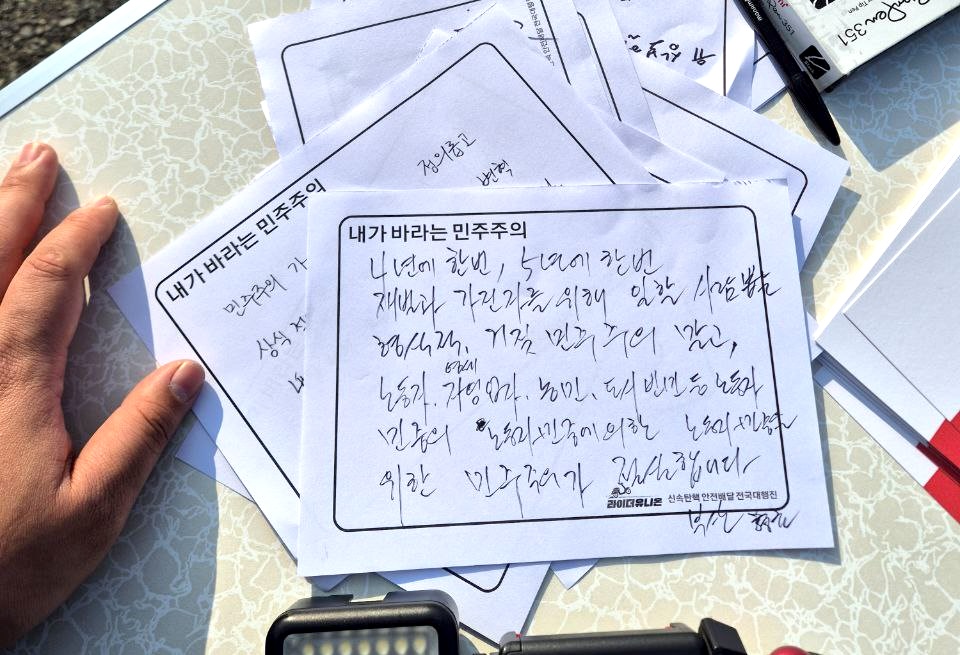 정의롭고
변혁
내가 바라는 민주주의
민주주의 가
상식
내가 바라는 민주주의
4년에 한번, 5년에 한번
재벌과 가진자를 위해 일할 사람뽑는
형식적, 거짓 민주주의 말고,
노동자, 영세 자영업자, 농민, 도시빈민 등 노동자
민중의 노동자·민중에 의한 노동자·민중을
위한 민주주의가 절실합니다
라이더유니온 신속탄핵 안전배달 전국대행진
351
351